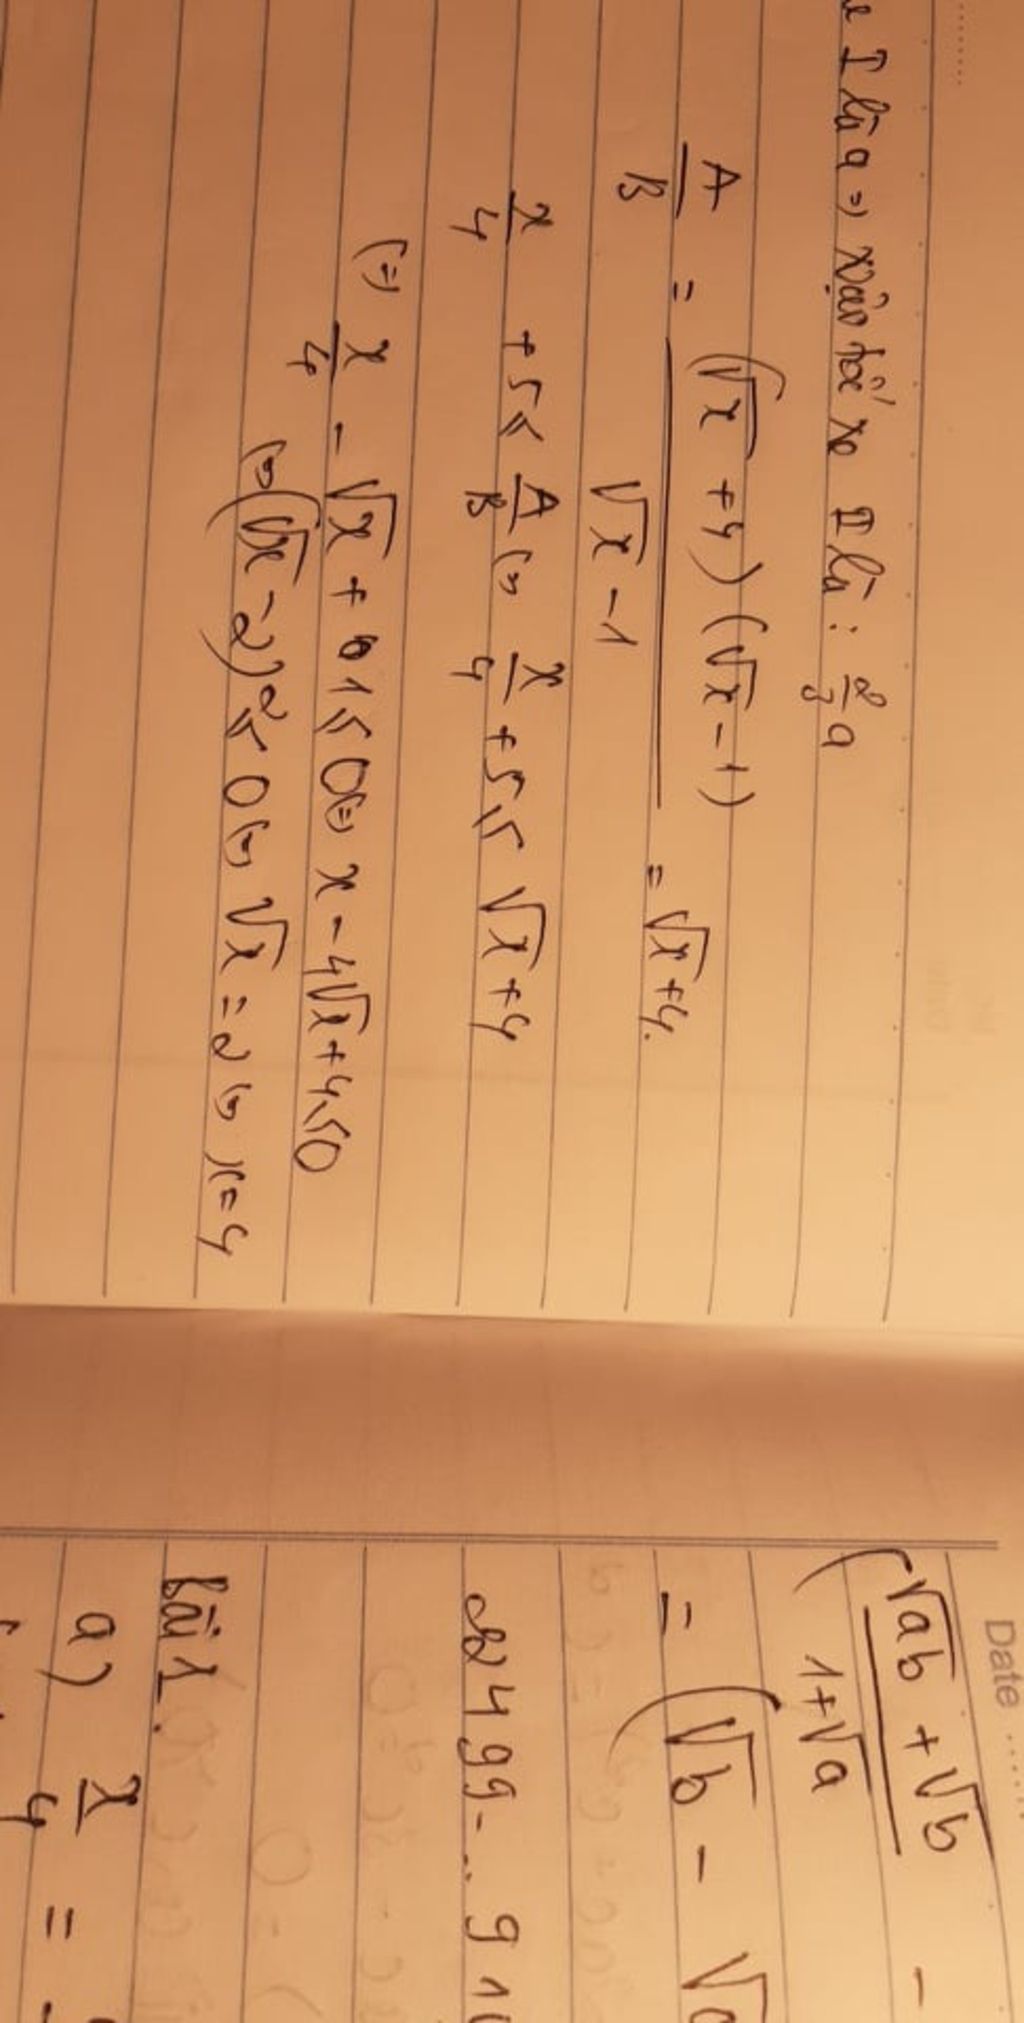 I là a => vận tốc xe II là: 2/3 a
A/B = (√x + 4)(√x - 1) / (√x - 1) = √x + 4.
x/4 + 5 ≤ A/B (=) x/4 + 5 ≤ √x + 4
(=) x/4 - √x + 1 ≤ 0 (=) x - 4√x + 4 ≤ 0
(=) (√x - 2)² ≤ 0 (=) √x = 2 (=) x = 4
Date
(√ab + √b / 1 + √a -
= (√b - √
2499...91
bài 1.
a) x/4 =